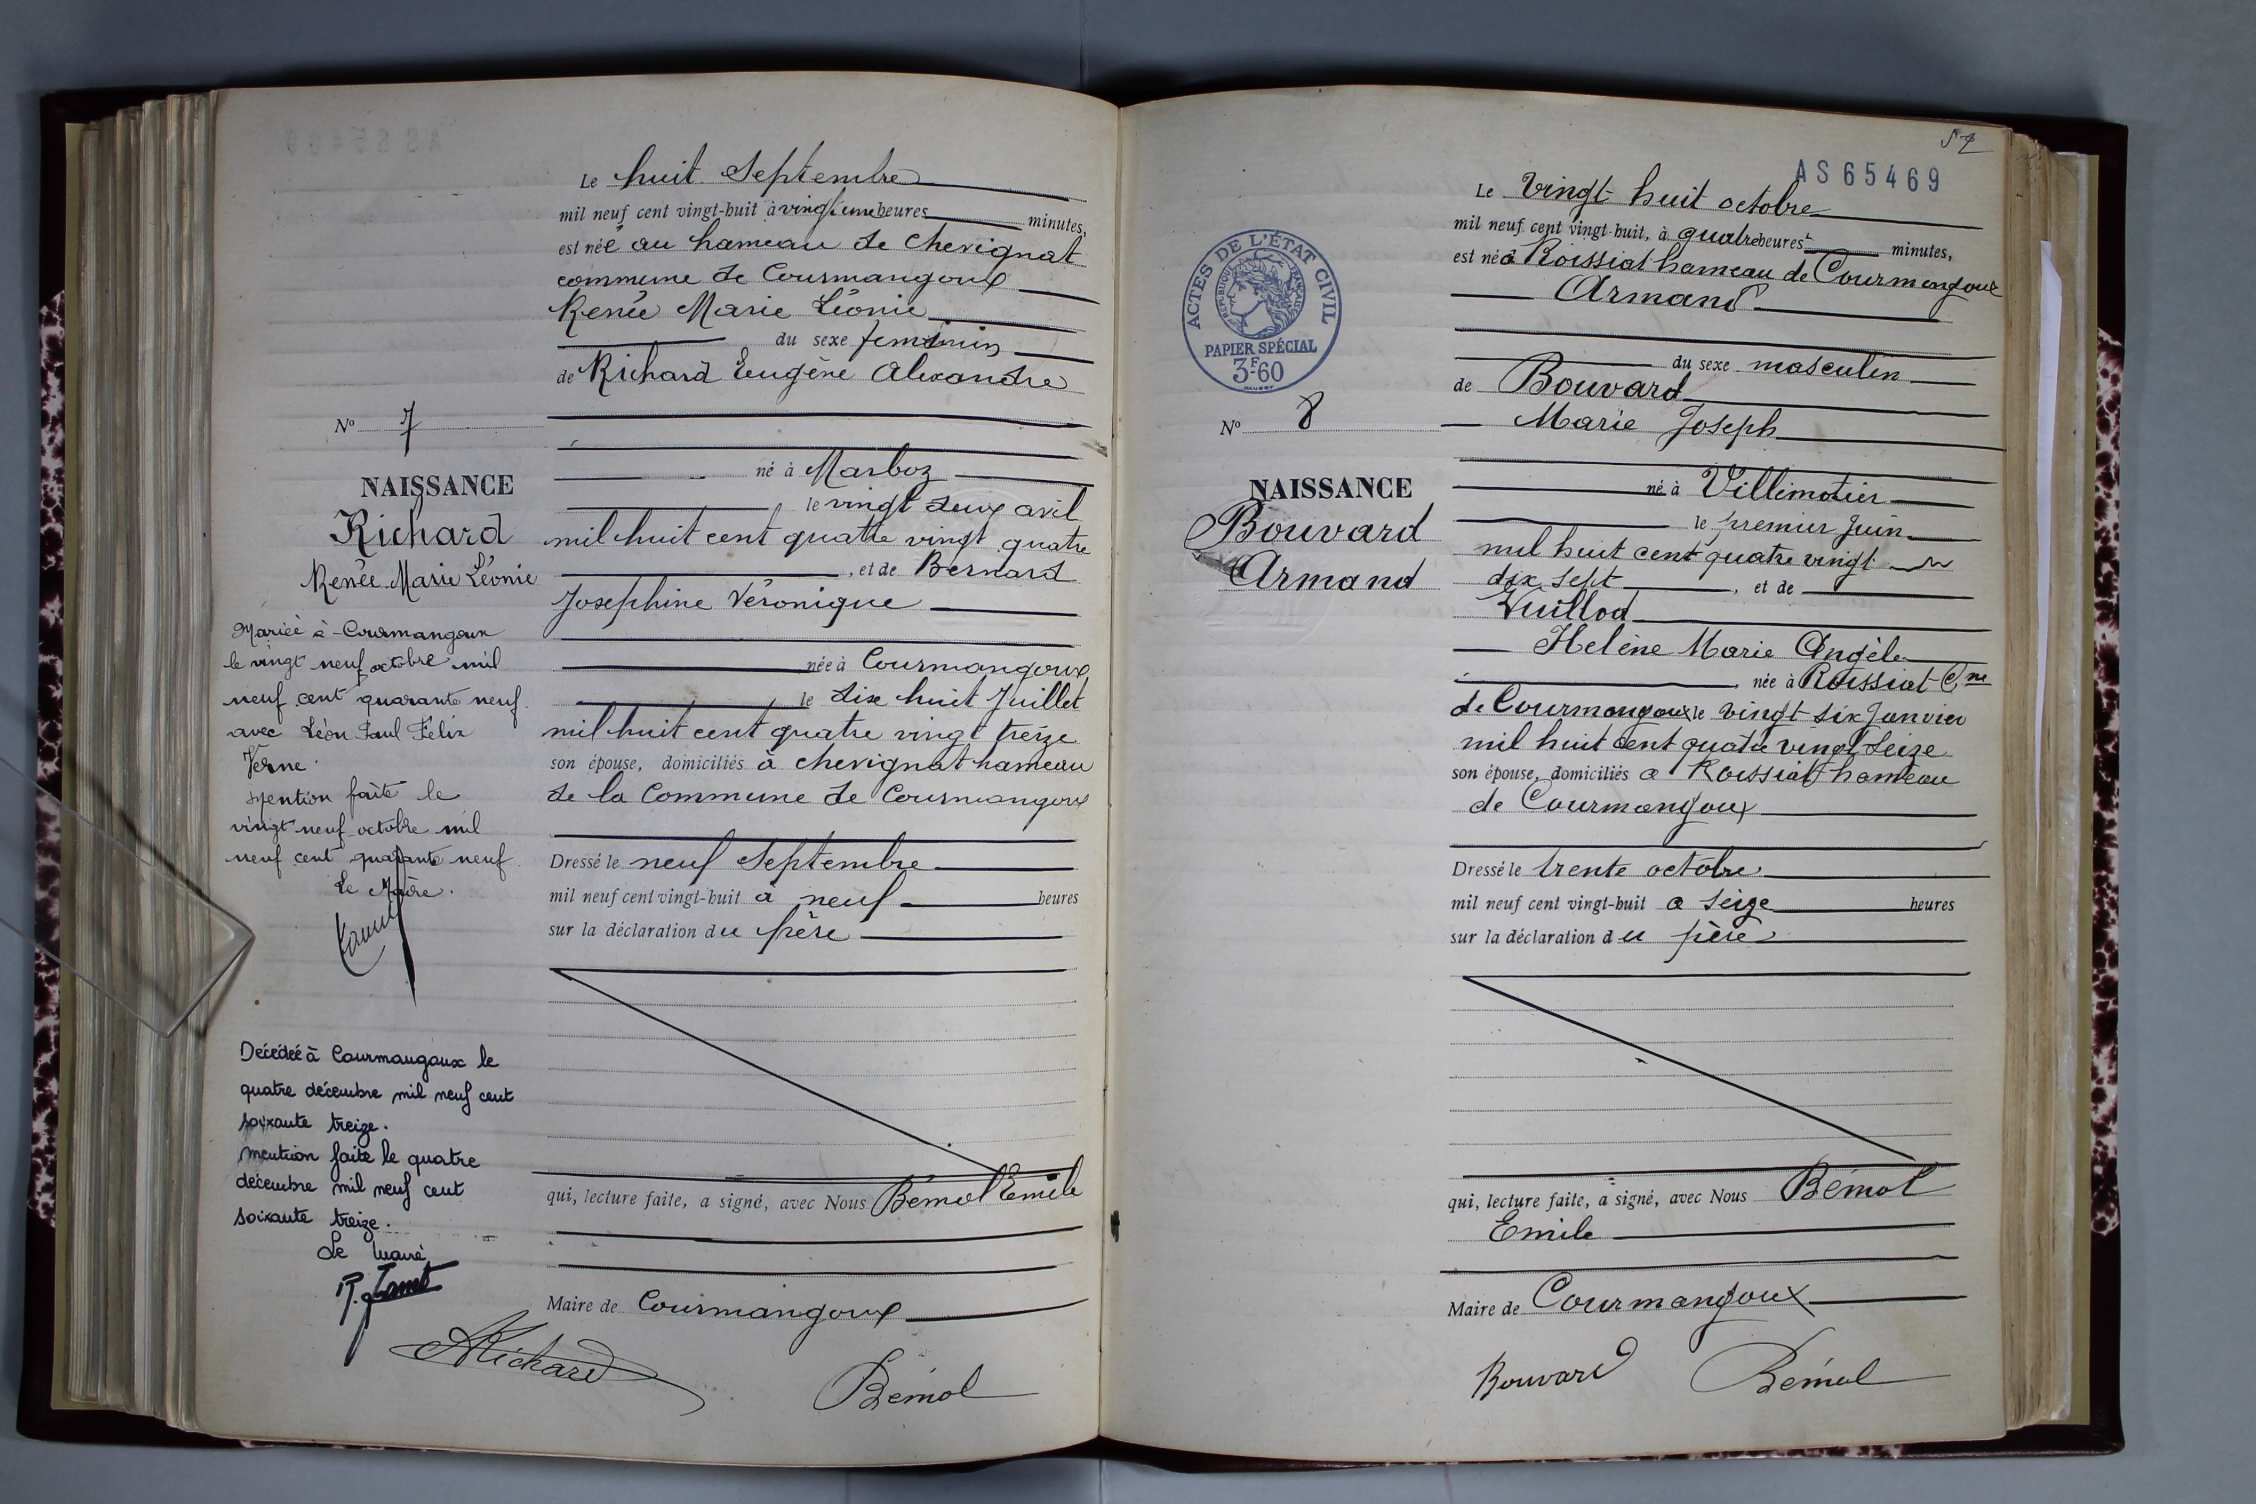 Le huit Septembre
mil neuf cent vingt-huit à vingt une heures minutes,
est née au hameau de Chevignat
commune de Courmangoux
Renée Marie Léonie
du sexe féminin
de Richard Eugène Alexandre
né à Marboz
le vingt deux avril
mil huit cent quatre vingt quatre
, et de Bernard
Joséphine Véronique
née à Courmangoux
le dix huit Juillet
mil huit cent quatre vingt treize
son épouse, domiciliés à Chevignat hameau
de la Commune de Courmangoux
Dressé le neuf Septembre
mil neuf cent vingt-huit à neuf heures
sur la déclaration du père
qui, lecture faite, a signé, avec Nous Bémol Emile
Maire de Courmangoux
Richard
Bémol
No 7
NAISSANCE
Richard
Renée Marie Léonie
Mariée à Courmangoux
le vingt neuf octobre mil
neuf cent quarante neuf
avec Léon Paul Félix
Verne.
Mention faite le
vingt neuf octobre mil
neuf cent quarante neuf.
Le Maire.
Décédée à Courmangoux le
quatre décembre mil neuf cent
soixante treize.
mention faite le quatre
décembre mil neuf cent
soixante treize.
Le Maire
AS65469
Le Vingt-huit octobre
mil neuf cent vingt-huit, à quatre heures minutes,
est né à Roissiat hameau de Courmangoux
Armand
du sexe masculin
de Bouvard
Marie Joseph
né à Villemotier
le premier Juin
mil huit cent quatre vingt
dix sept, et de
Vuillod
Helène Marie Angèle
née à Roissiat Cne
de Courmangoux le vingt six Janvier
mil huit cent quatre vingt seize
son épouse, domiciliés à Roissiat hameau
de Courmangoux
Dressé le trente octobre
mil neuf cent vingt-huit à seize heures
sur la déclaration du père
qui, lecture faite, a signé, avec Nous Bémol
Emile
Maire de Courmangoux
Bouvard
Bémol
ACTES DE L'ÉTAT CIVIL
RÉPUBLIQUE FRANÇAISE
PAPIER SPÉCIAL
3F-60
No 8
NAISSANCE
Bouvard
Armand